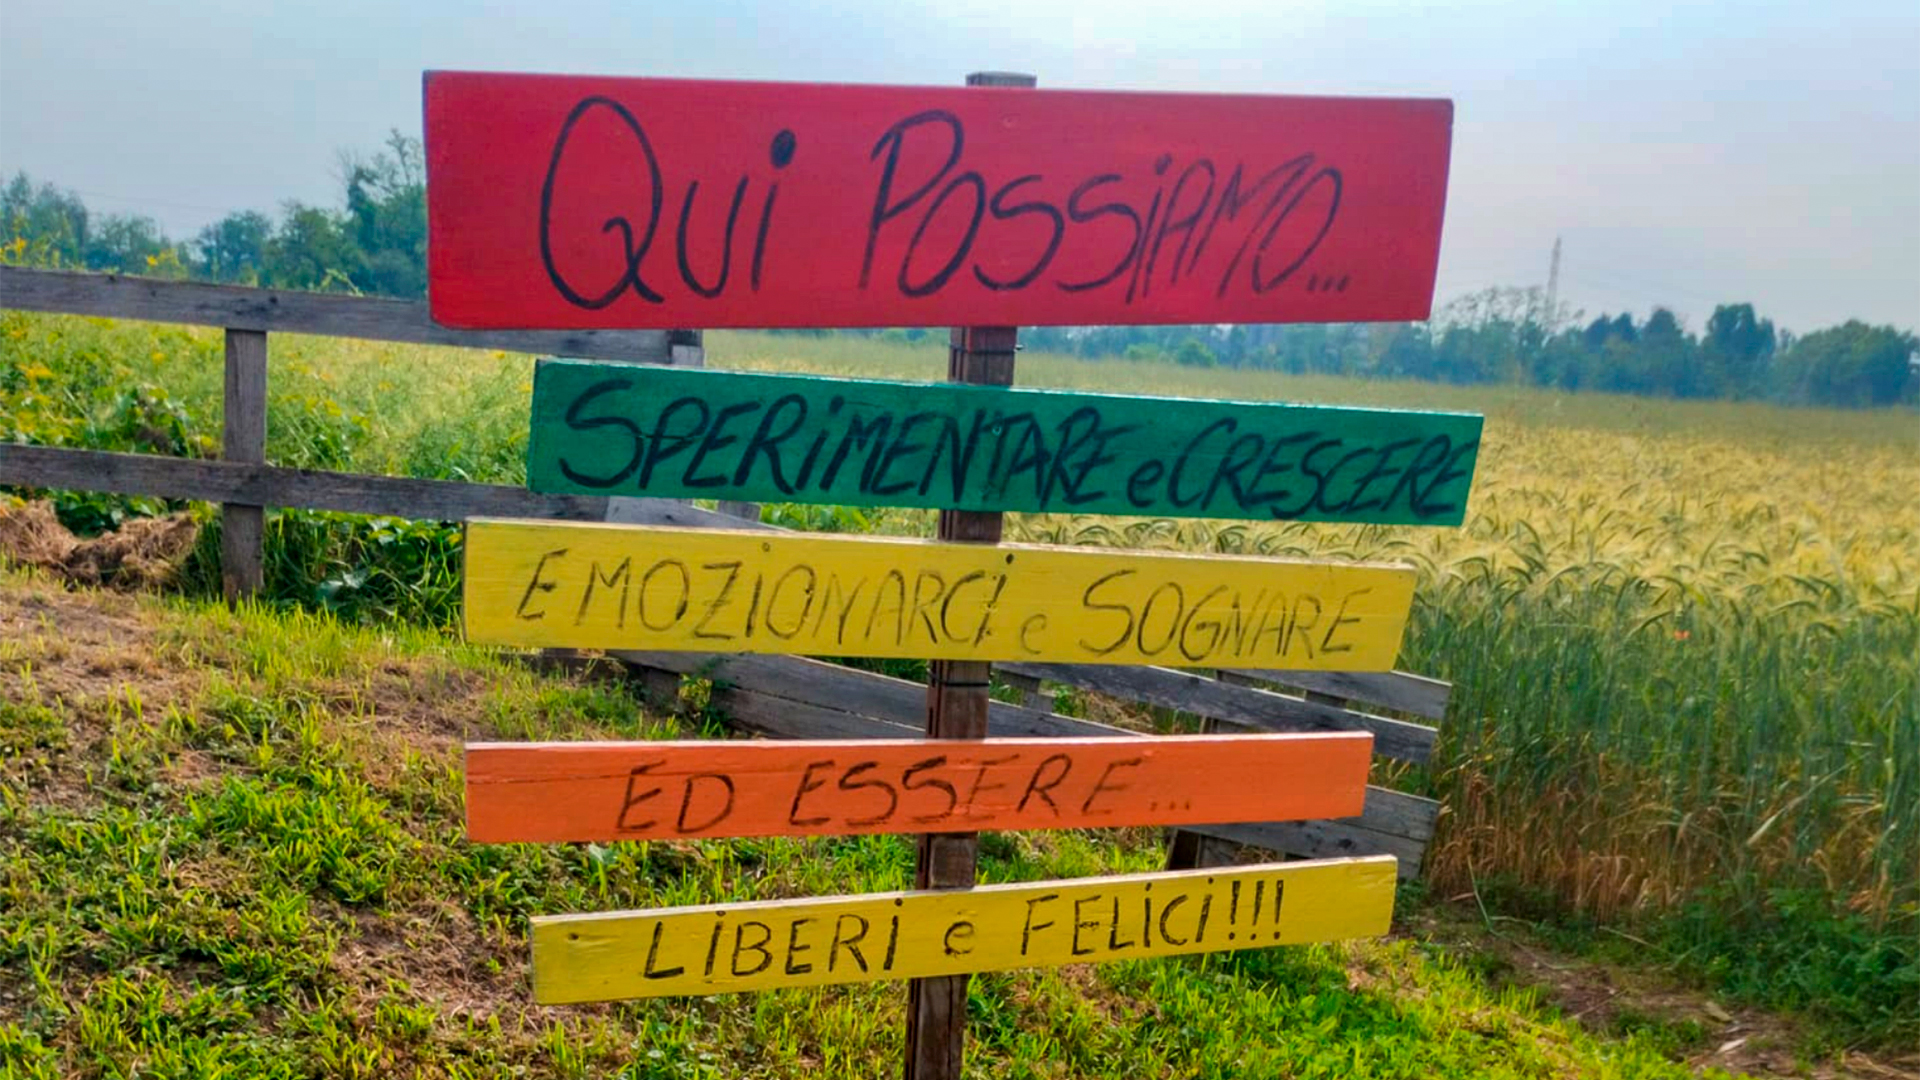 Qui POSSiAMO...
SPERiMENTARE e CRESCERE
EMOZIONARCi e SOGNARE
ED ESSERE...
LiBERi e FELiCi!!!